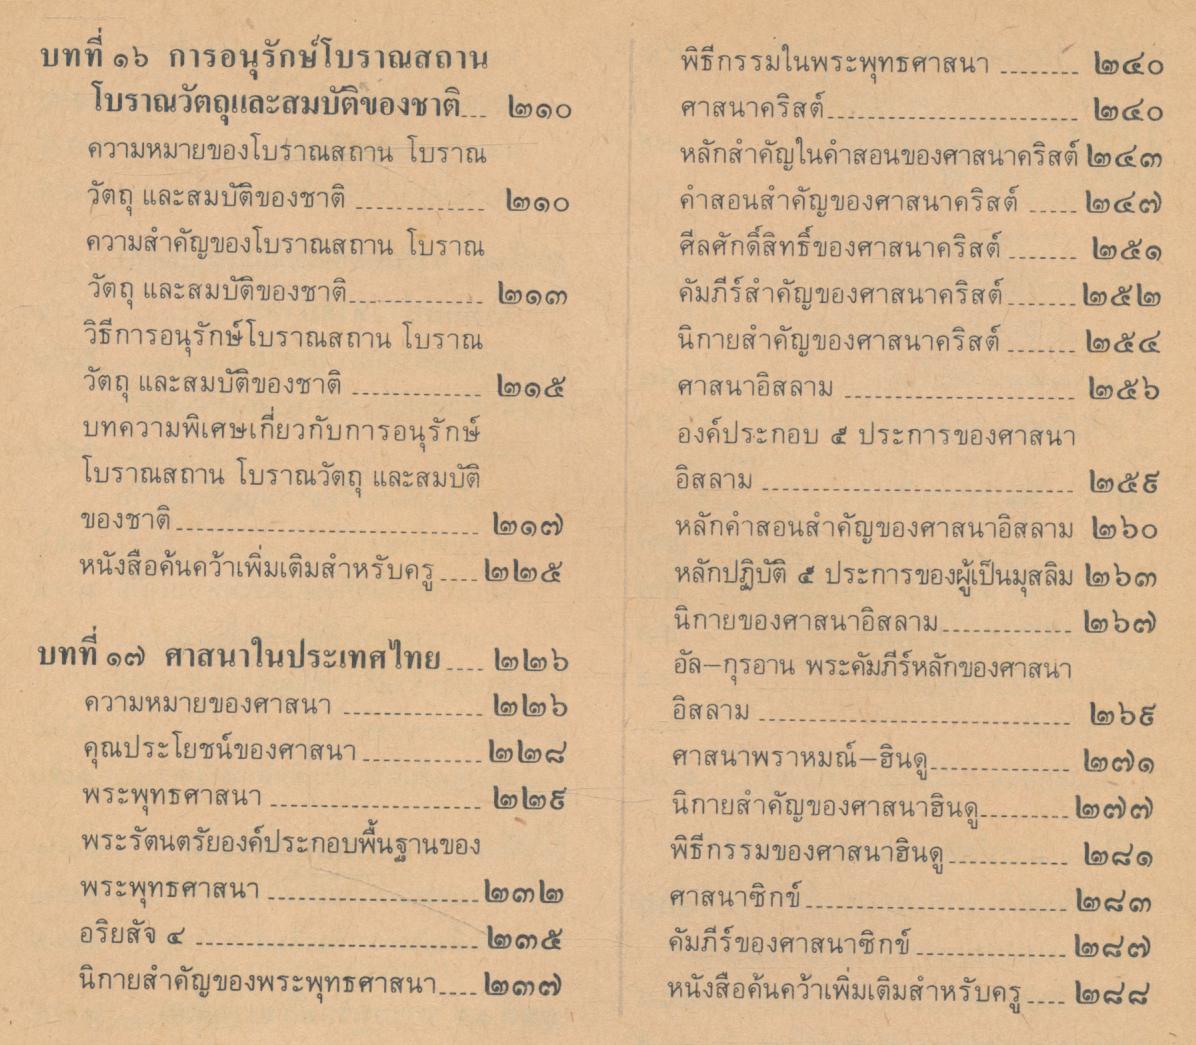 บทที่ ๑๖ การอนุรักษ์โบราณสถาน
โบราณวัตถุและสมบัติของชาติ.... ๒๑๐
ความหมายของโบราณสถาน โบราณ
วัตถุ และสมบัติของชาติ .............. ๒๑๐
ความสำคัญของโบราณสถาน โบราณ
วัตถุ และสมบัติของชาติ............... ๒๑๓
วิธีการอนุรักษ์โบราณสถาน โบราณ
วัตถุ และสมบัติของชาติ .............. ๒๑๕
บทความพิเศษเกี่ยวกับการอนุรักษ์
โบราณสถาน โบราณวัตถุ และสมบัติ
ของชาติ ................................. ๒๑๗
หนังสือค้นคว้าเพิ่มเติมสำหรับครู .... ๒๒๕
บทที่ ๑๗ ศาสนาในประเทศไทย .... ๒๒๖
ความหมายของศาสนา ............... ๒๒๖
คุณประโยชน์ของศาสนา ............. ๒๒๘
พระพุทธศาสนา ....................... ๒๒๙
พระรัตนตรัยองค์ประกอบพื้นฐานของ
พระพุทธศาสนา ....................... ๒๓๒
อริยสัจ ๔ ............................... ๒๓๕
นิกายสำคัญของพระพุทธศาสนา.... ๒๓๗
พิธีกรรมในพระพุทธศาสนา ......... ๒๔๐
ศาสนาคริสต์............................ ๒๔๐
หลักสำคัญในคำสอนของศาสนาคริสต์ ๒๔๓
คำสอนสำคัญของศาสนาคริสต์ ..... ๒๔๗
ศีลศักดิ์สิทธิ์ของศาสนาคริสต์ ........ ๒๕๑
คัมภีร์สำคัญของศาสนาคริสต์ ........ ๒๕๒
นิกายสำคัญของศาสนาคริสต์ ........ ๒๕๔
ศาสนาอิสลาม ......................... ๒๕๖
องค์ประกอบ ๕ ประการของศาสนา
อิสลาม .................................. ๒๕๙
หลักคำสอนสำคัญของศาสนาอิสลาม ๒๖๐
หลักปฏิบัติ ๕ ประการของผู้เป็นมุสลิม ๒๖๓
นิกายของศาสนาอิสลาม.............. ๒๖๗
อัล–กุรอาน พระคัมภีร์หลักของศาสนา
อิสลาม .................................. ๒๖๙
ศาสนาพราหมณ์–ฮินดู............... ๒๗๑
นิกายสำคัญของศาสนาฮินดู.......... ๒๗๗
พิธีกรรมของศาสนาฮินดู............. ๒๘๑
ศาสนาซิกข์ ............................ ๒๘๓
คัมภีร์ของศาสนาซิกข์ ................ ๒๘๗
หนังสือค้นคว้าเพิ่มเติมสำหรับครู .... ๒๘๘